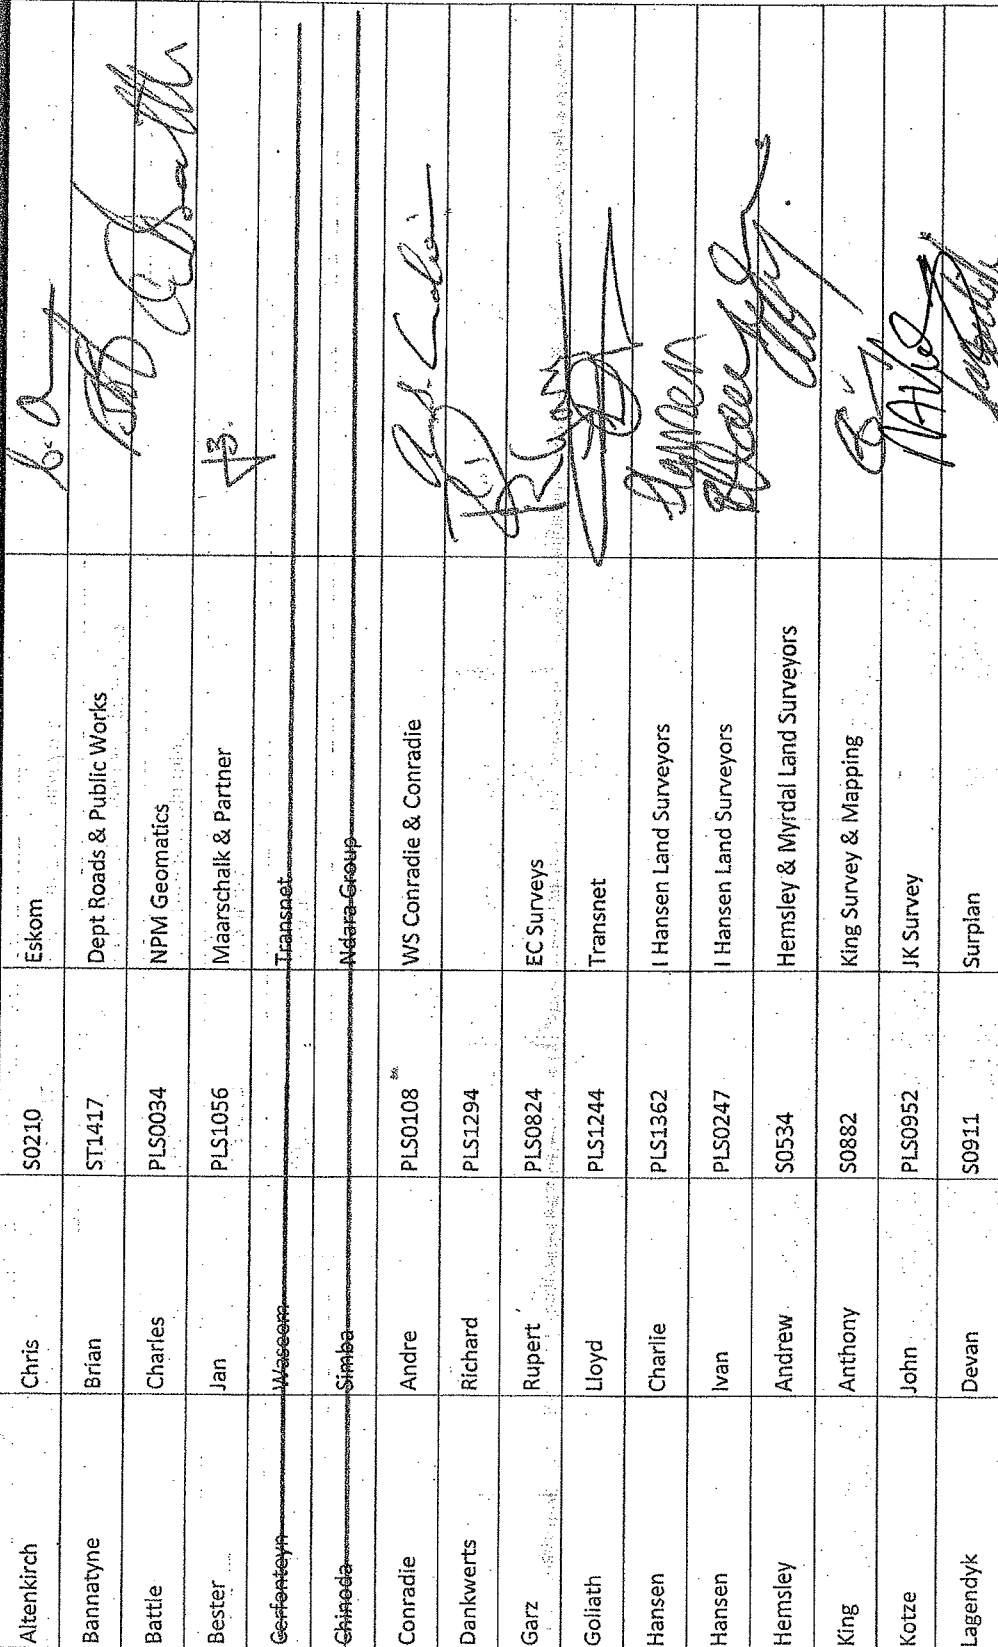 Altenkirch Chris S0210 Eskom
Bannatyne Brian ST1417 Dept Roads & Public Works
Battle Charles PLS0034 NPM Geomatics
Bester Jan PLS1056 Maarschalk & Partner
Cerfonteyn Waseem Transnet
Chinoda Simba Ndara Group
Conradie Andre PLS0108 WS Conradie & Conradie
Dankwerts Richard PLS1294
Garz Rupert PLS0824 EC Surveys
Goliath Lloyd PLS1244 Transnet
Hansen Charlie PLS1362 I Hansen Land Surveyors
Hansen Ivan PLS0247 I Hansen Land Surveyors
Hemsley Andrew S0534 Hemsley & Myrdal Land Surveyors
King Anthony S0882 King Survey & Mapping
Kotze John PLS0952 JK Survey
Lagendyk Devan S0911 Surplan